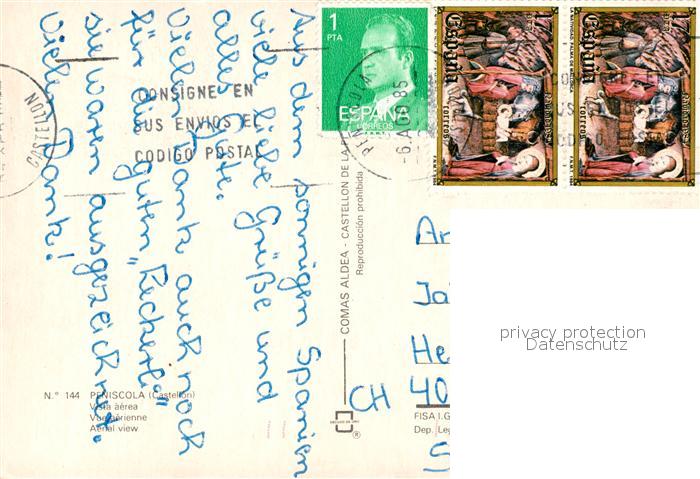 Aus dem sonnigen Spanien
viele liebe Grüße und
alles Gute.
Vielen Dank auch noch
für die guten „Leckerli"
sie waren ausgezeichnet.
Vielen Dank!
CONSIGNE EN
SUS ENVIOS EL
CODIGO POSTAL
CASTELLON
1
PTA
ESPAÑA
CORREOS
-6.A
85
España
17
España
17
COMAS ALDEA - CASTELLON DE LA
Reproducción prohibida
N.° 144 PEÑISCOLA (Castellón)
Vista aérea
Vue aérienne
Aerial view
CH
40
FISA I.G
Dep. Leg
®
privacy protection
Datenschutz